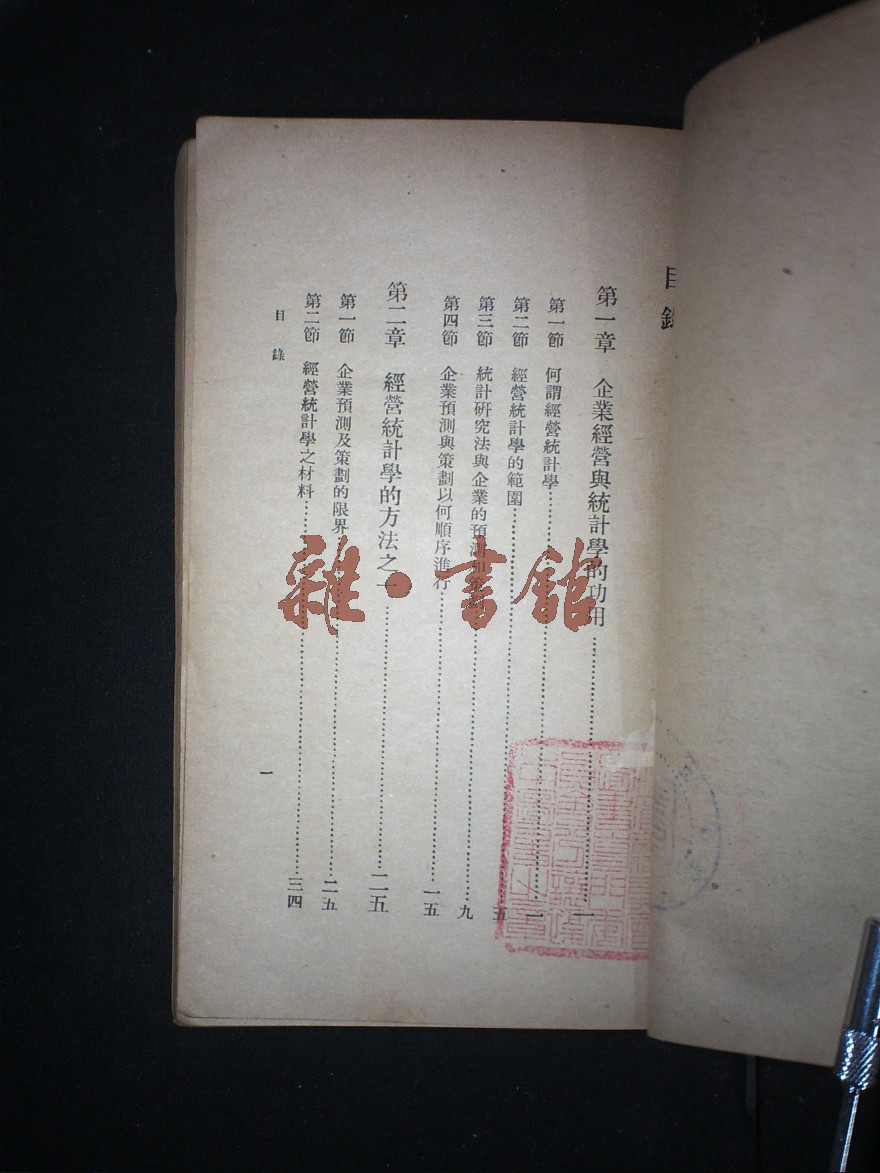 目錄
第一章 企業經營與統計學的功用……一
第一節 何謂經營統計學……一
第二節 經營統計學的範圍……五
第三節 統計研究法與企業的預測……九
第四節 企業預測與策劃以何順序進行……一五
第二章 經營統計學的方法之一……二五
第一節 企業預測及策劃的限界……二五
第二節 經營統計學之材料……三四
目錄
一
雜·書館